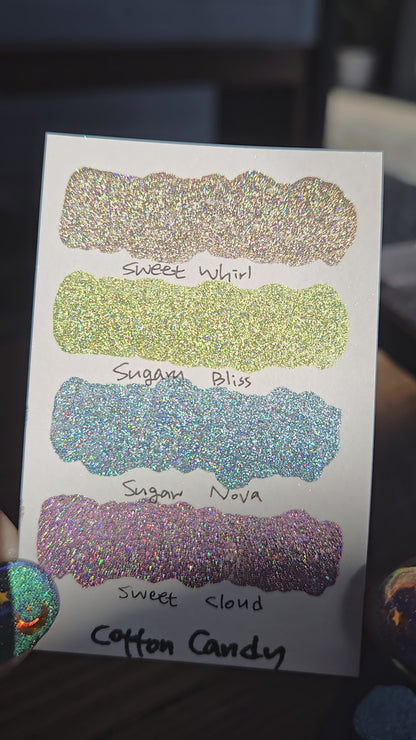 Sweet Whirl
Sugary Bliss
Sugar Nova
Sweet Cloud
Cotton Candy